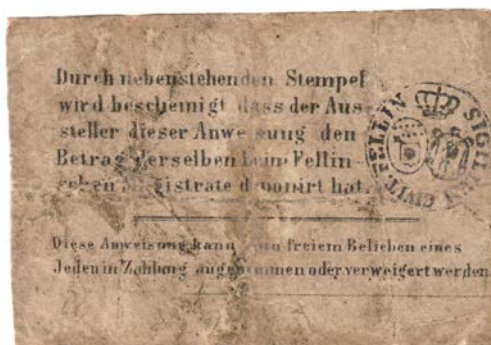 Durch nebenstehenden Stempel
wird bescheinigt dass der Aus-
steller dieser Anweisung den
Betrag derselben beim Fellin-
schen Magistrate deponirt hat.
SIGILL CIVIT FELLIN
Diese Anweisung kann von freiem Belieben eines
Jeden in Zahlung angenommen oder verweigert werden